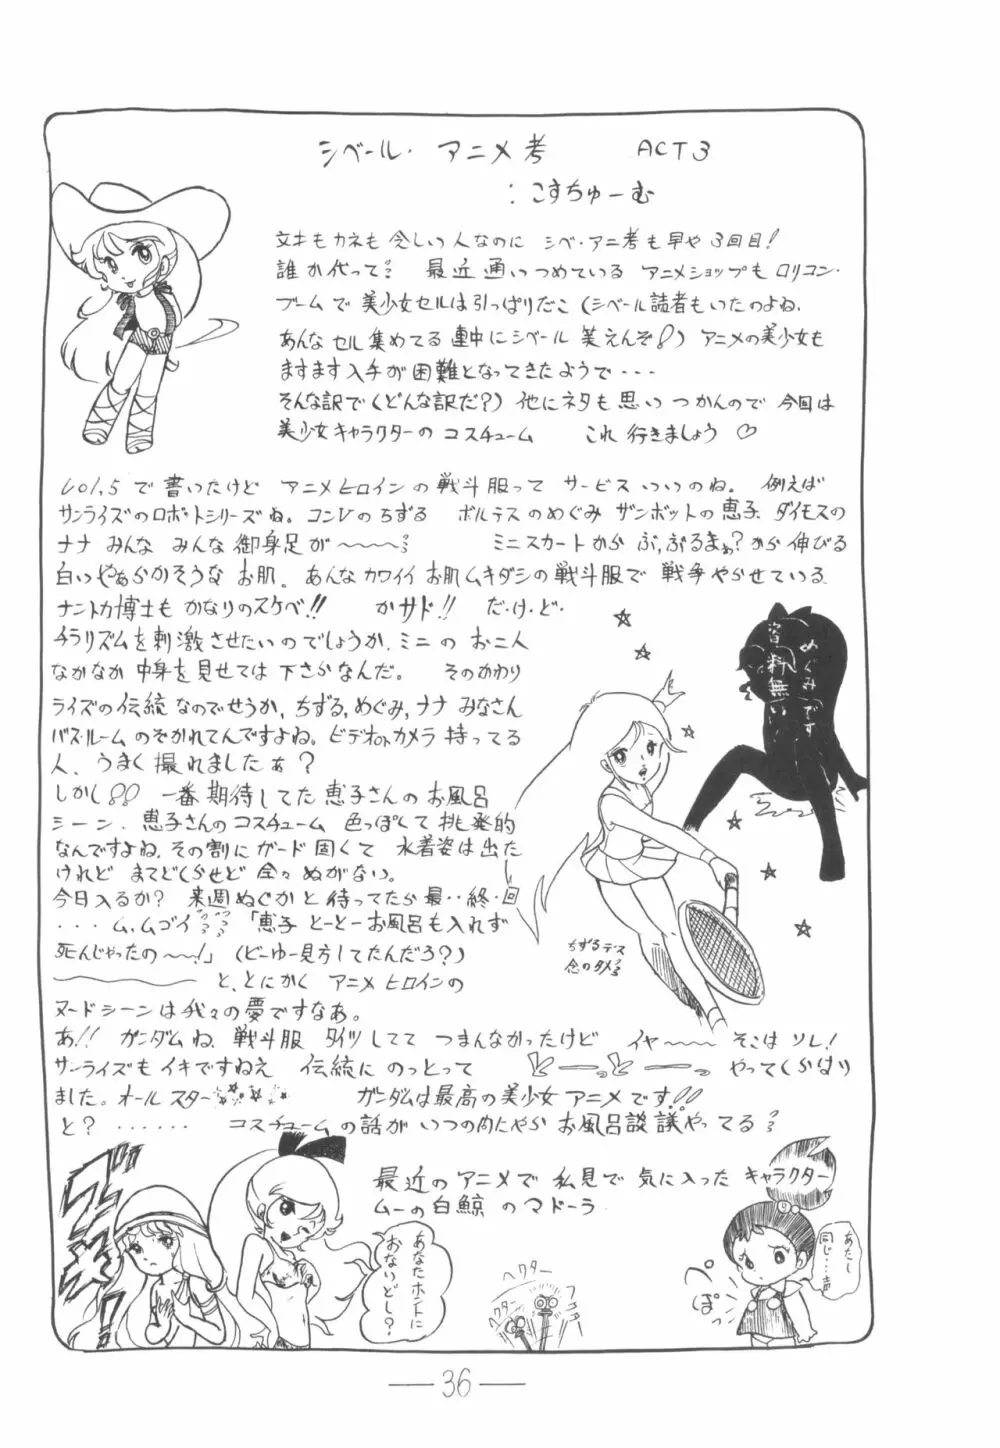 シベール・アニメ考 ACT3
：こすちゅーむ
文才もカネも乏しい人なのに シベ・アニ考も早や3回目！
誰か代って？ 最近通いつめている アニメショップも ロリコン・
ブームで 美少女セルは引っぱりだこ（シベール読者もいたのよね、
あんな セル集めてる連中にシベール 笑えんぞ！）アニメの美少女も
ますます入手が困難となってきたようで・・・
そんな訳で（どんな訳だ？）他にネタも思い つかんので 今回は
美少女キャラクターの コスチューム これ 行きましょう♡
Vol,5 で 書いたけど アニメヒロインの戦斗服って サービス いいのね。例えば
サンライズのロボットシリーズね。コンVのちずる ボルテスのめぐみ ザンボットの恵子 ダイモスの
ナナ みんな みんな 御身足が〜〜〜
ミニスカートから ぷ,ぷるまぁ？から 伸びる
白いやわらかそうな お肌。あんな カワイイ お肌ムキダシの戦斗服で 戦争やらせている
ナントカ博士も かなりのスケベ!! かサド!! だ・け・ど・
チラリズムを刺激させたいのでしょうか、ミニの お二人
なかなか 中身を見せては 下さらなんだ。 そのかわり
ライズの伝統なのでせうか, ちずる, めぐみ, ナナ みなさん
バス・ルームのぞかれてんですよね。ビデオorカメラ 持ってる
人、うまく 撮れましたぁ？
しかし!! 一番期待してた 恵子さんの お風呂
シーン、恵子さんのコスチューム 色っぽくて 挑発的
なんですよね、その割に ガード固くて 水着姿は出た
けれど まてどくらせど 全々 ぬがない。
今日入るか？ 来週ぬぐかと 待ってたら 最・・終・回
・・・ム,ムゴイ 「恵子 とーとーお風呂も入れず
死んじゃったの〜〜！」（どーゆー見方してたんだろ？）
〜〜〜 と, とにかく アニメヒロインの
ヌードシーンは我々の夢ですなあ。
あ!! ガンダムね、戦斗服 タイツしてて つまんなかったけど イヤ〜〜〜 そこは ソレ！
サンライズも イキですねえ 伝統に のっとって やってくれはり
ました。オール スター ガンダムは最高の美少女アニメです!!
と？ ・・・・・・ コスチュームの話が いつの間にやら お風呂談議やってる
めぐみです
資料無い
ちずるデス
念のタメ
最近のアニメで 私見で 気に入った キャラクター
ムーの白鯨 の マドーラ
あなたホントに
おないどし？
ヘクター
ヘクター
あたし
同じ…声
ぽっ
― 36 ―